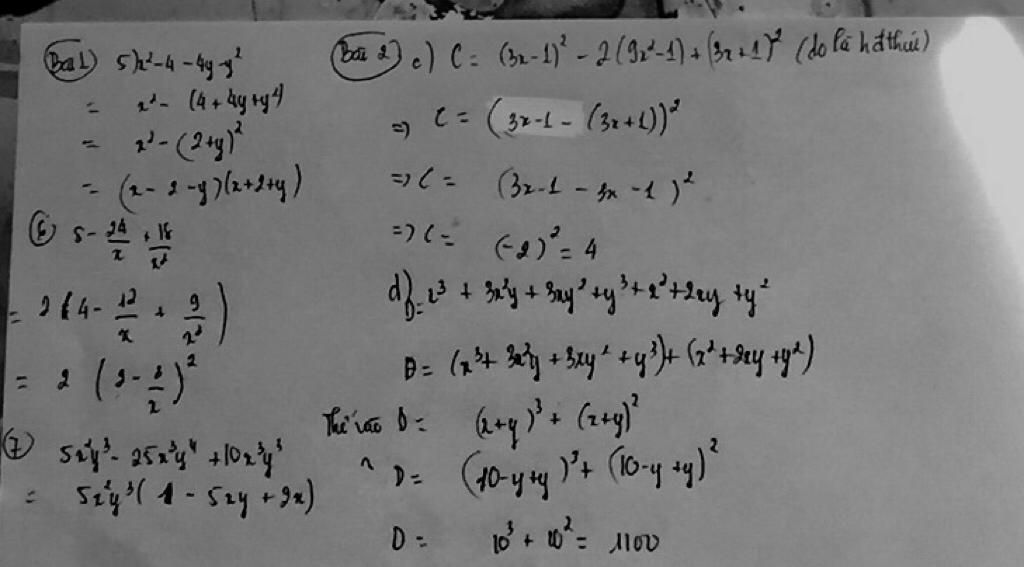 Bài 1) 5) x² - 4 - 4y - y²
= x² - (4 + 4y + y²)
= x² - (2+y)²
= (x - 2 - y)(x+2+y)
6) 8 - 24/x + 18/x²
= 2(4 - 12/x + 9/x²)
= 2(2 - 3/x)²
7) 5x²y³ - 25x³y⁴ + 10x³y³
= 5x²y³(1 - 5xy + 2x)
Bài 2) c) C = (3x-1)² - 2(9x²-1) + (3x+1)² (do là hđ thức)
=> C = (3x-1 - (3x+1))²
=> C = (3x-1 - 3x - 1)²
=> C = (-2)² = 4
d) D = x³ + 3x²y + 3xy² + y³ + x² + 2xy + y²
D = (x³ + 3x²y + 3xy² + y³) + (x² + 2xy + y²)
Thế vào D = (x+y)³ + (x+y)²
D = (10-y+y)³ + (10-y+y)²
D = 10³ + 10² = 1100